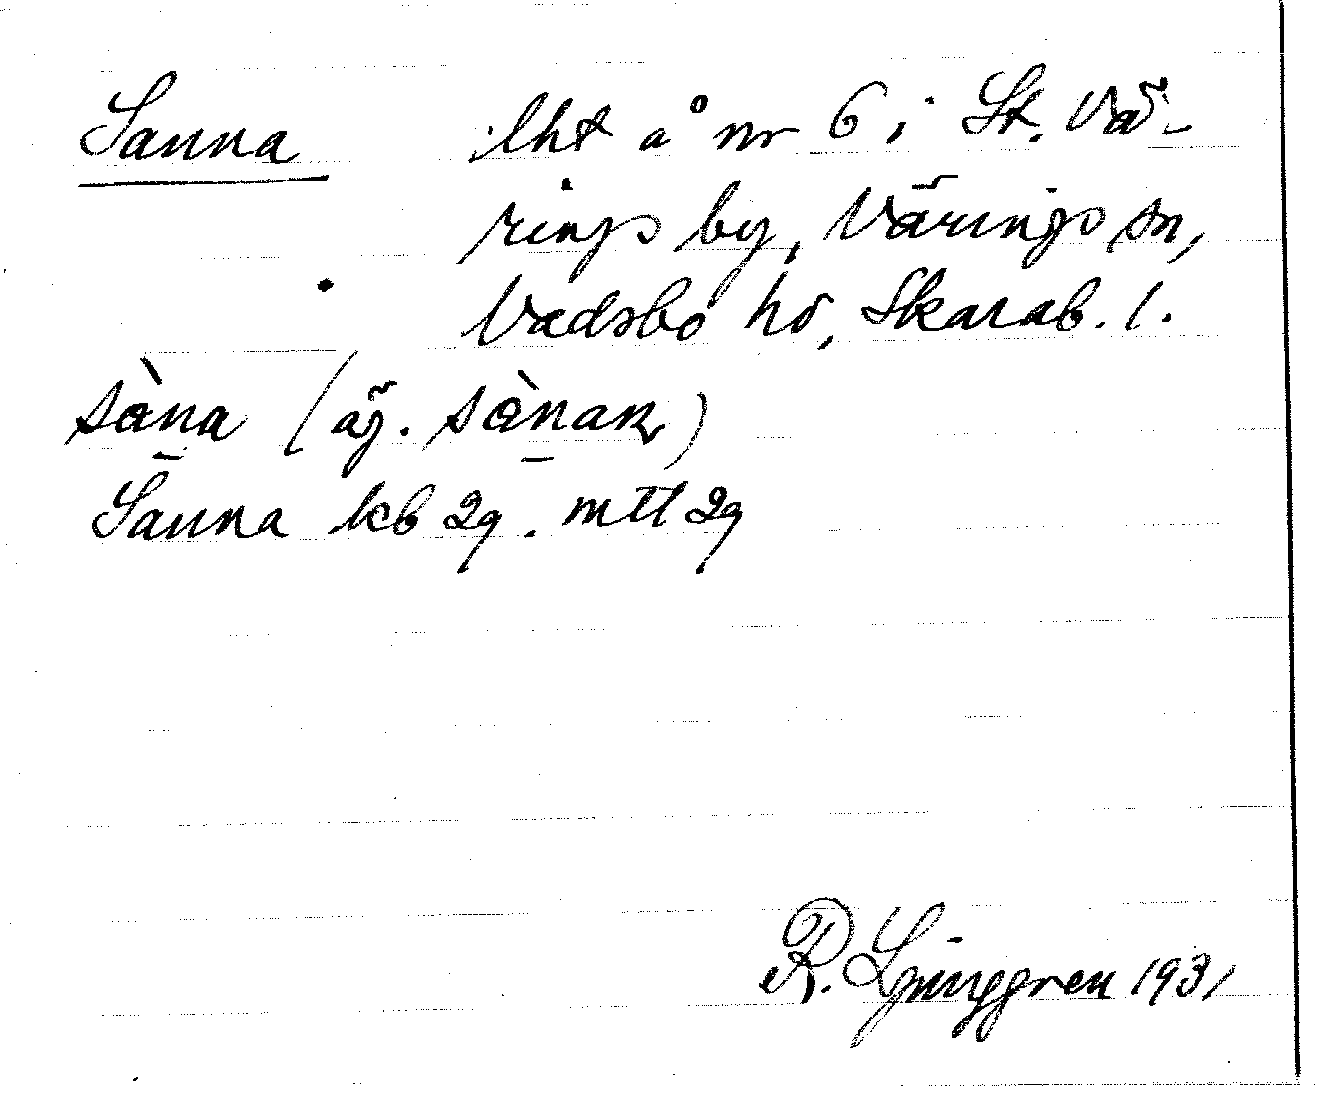 Sanna lht å nr 6 i St. Vä-
rings by, Värings sn,
Vadsbo hd, Skarab. l.
sàna (äj. sànan)
Sanna kb 29. mtl 29
R. Ljunggren 1931